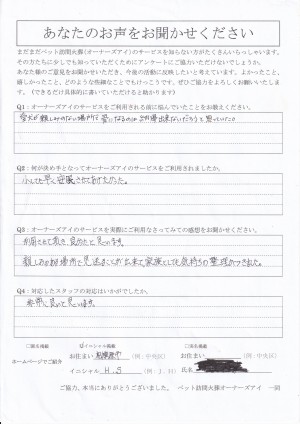 あなたのお声をお聞かせください
まだまだペット訪問火葬(オーナーズアイ)のサービスを知らない方がたくさんいらっしゃいます。
その方たちに少しでも知っていただくためにアンケートにご協力いただけないでしょうか。
あなた様のご意見をお聞かせいただき、今後の活動に反映したいと考えています。よかったこと、
嬉しかったこと、どのような些細なことでもけっこうです。ぜひご協力をよろしくお願いいたします。
(できるだけ具体的に書いていただけると助かります)
Q1:オーナーズアイのサービスをご利用される前に悩んでいたことをお教えください。
愛犬が親しみのない場所で
思っていた
Q2:何が決め手となってオーナーズアイのサービスをご利用されましたか。
少しでも早く安眠させてあげたかった。
Q3:オーナーズアイのサービスを実際にご利用なさってみての感想をお聞かせください。
利用させて頂き、良かったと思います。
親しみのある場所で見送ることが出来て、家族としても気持ちの整理がつきました。
Q4:対応したスタッフの対応はいかがでしたか。
非常に良いと思います。
□匿名掲載 ☑イニシャル掲載 □実名掲載
ホームページでご紹介 お住まい (例:中央区) お住まい (例:中央区)
イニシャル H.S (例:J.H) 氏名
ご協力、本当にありがとうございました。 ペット訪問火葬オーナーズアイ 一同